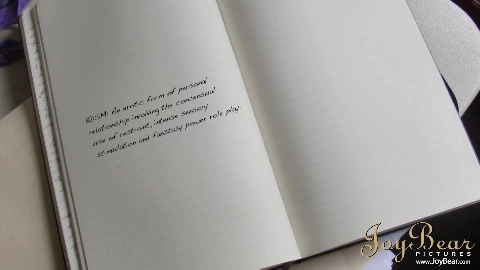 BDSM: An erotic form of personal
relationship involving the consensual
use of restraint, intense sensory
stimulation and fantasty power role play.
JoyBear
PICTURES
www.JoyBear.com